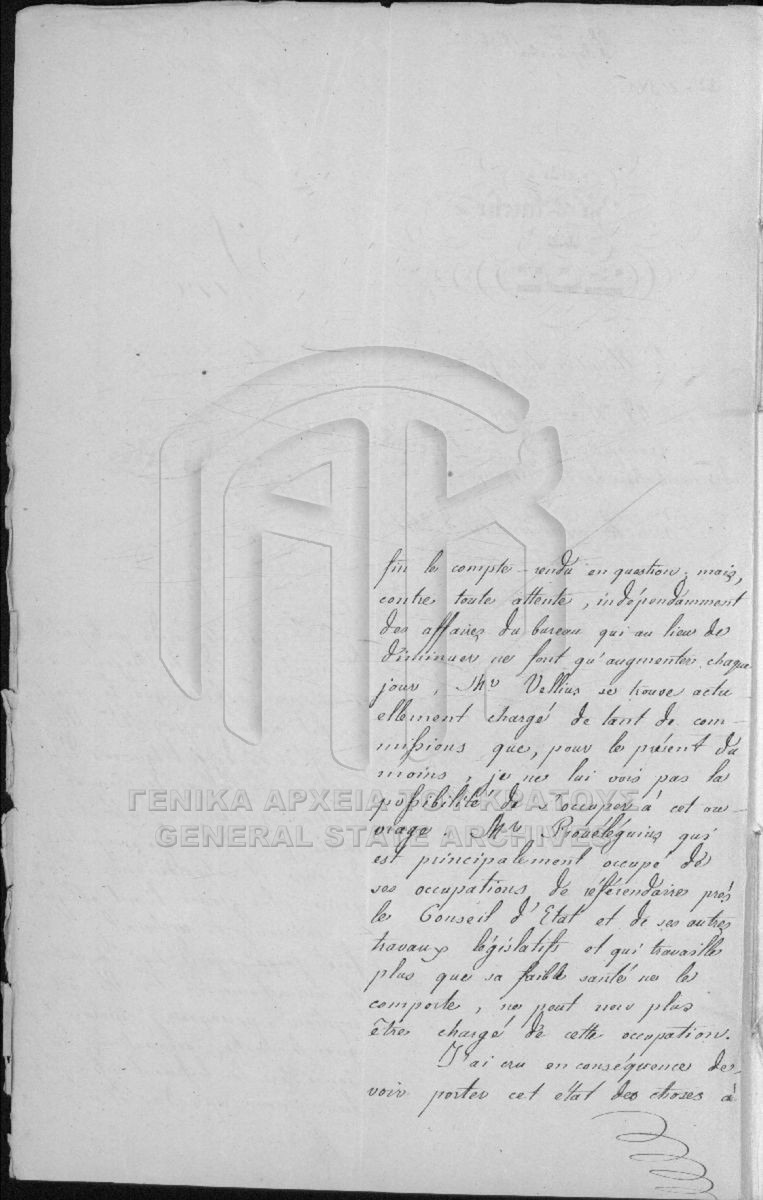 fin le compte-rendu en question; mais,
contre toute attente, indépendamment
des affaires du bureau qui au lieu de
diminuer ne font qu'augmenter chaque
jour, Mr Vellius se trouve actu
ellement chargé de tant de com-
missions que, pour le présent du
moins, je ne lui vois pas la
possibilité de s'occuper à cet ou-
ΓΕΝΙΚΑ ΑΡΧΕΙΑ ΤΟΥ ΚΡΑΤΟΥΣ
vrage. Mr Provéléguius qui
GENERAL STATE ARCHIVES
est principalement occupé de
ses occupations de référendaire près
le Conseil d'Etat et de ses autres
travaux législatifs et qui travaille
plus que sa faible santé ne le
comporte, ne peut non plus
être chargé de cette occupation.
J'ai cru en conséquence de-
voir porter cet état des choses à